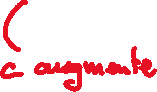 ça augmente